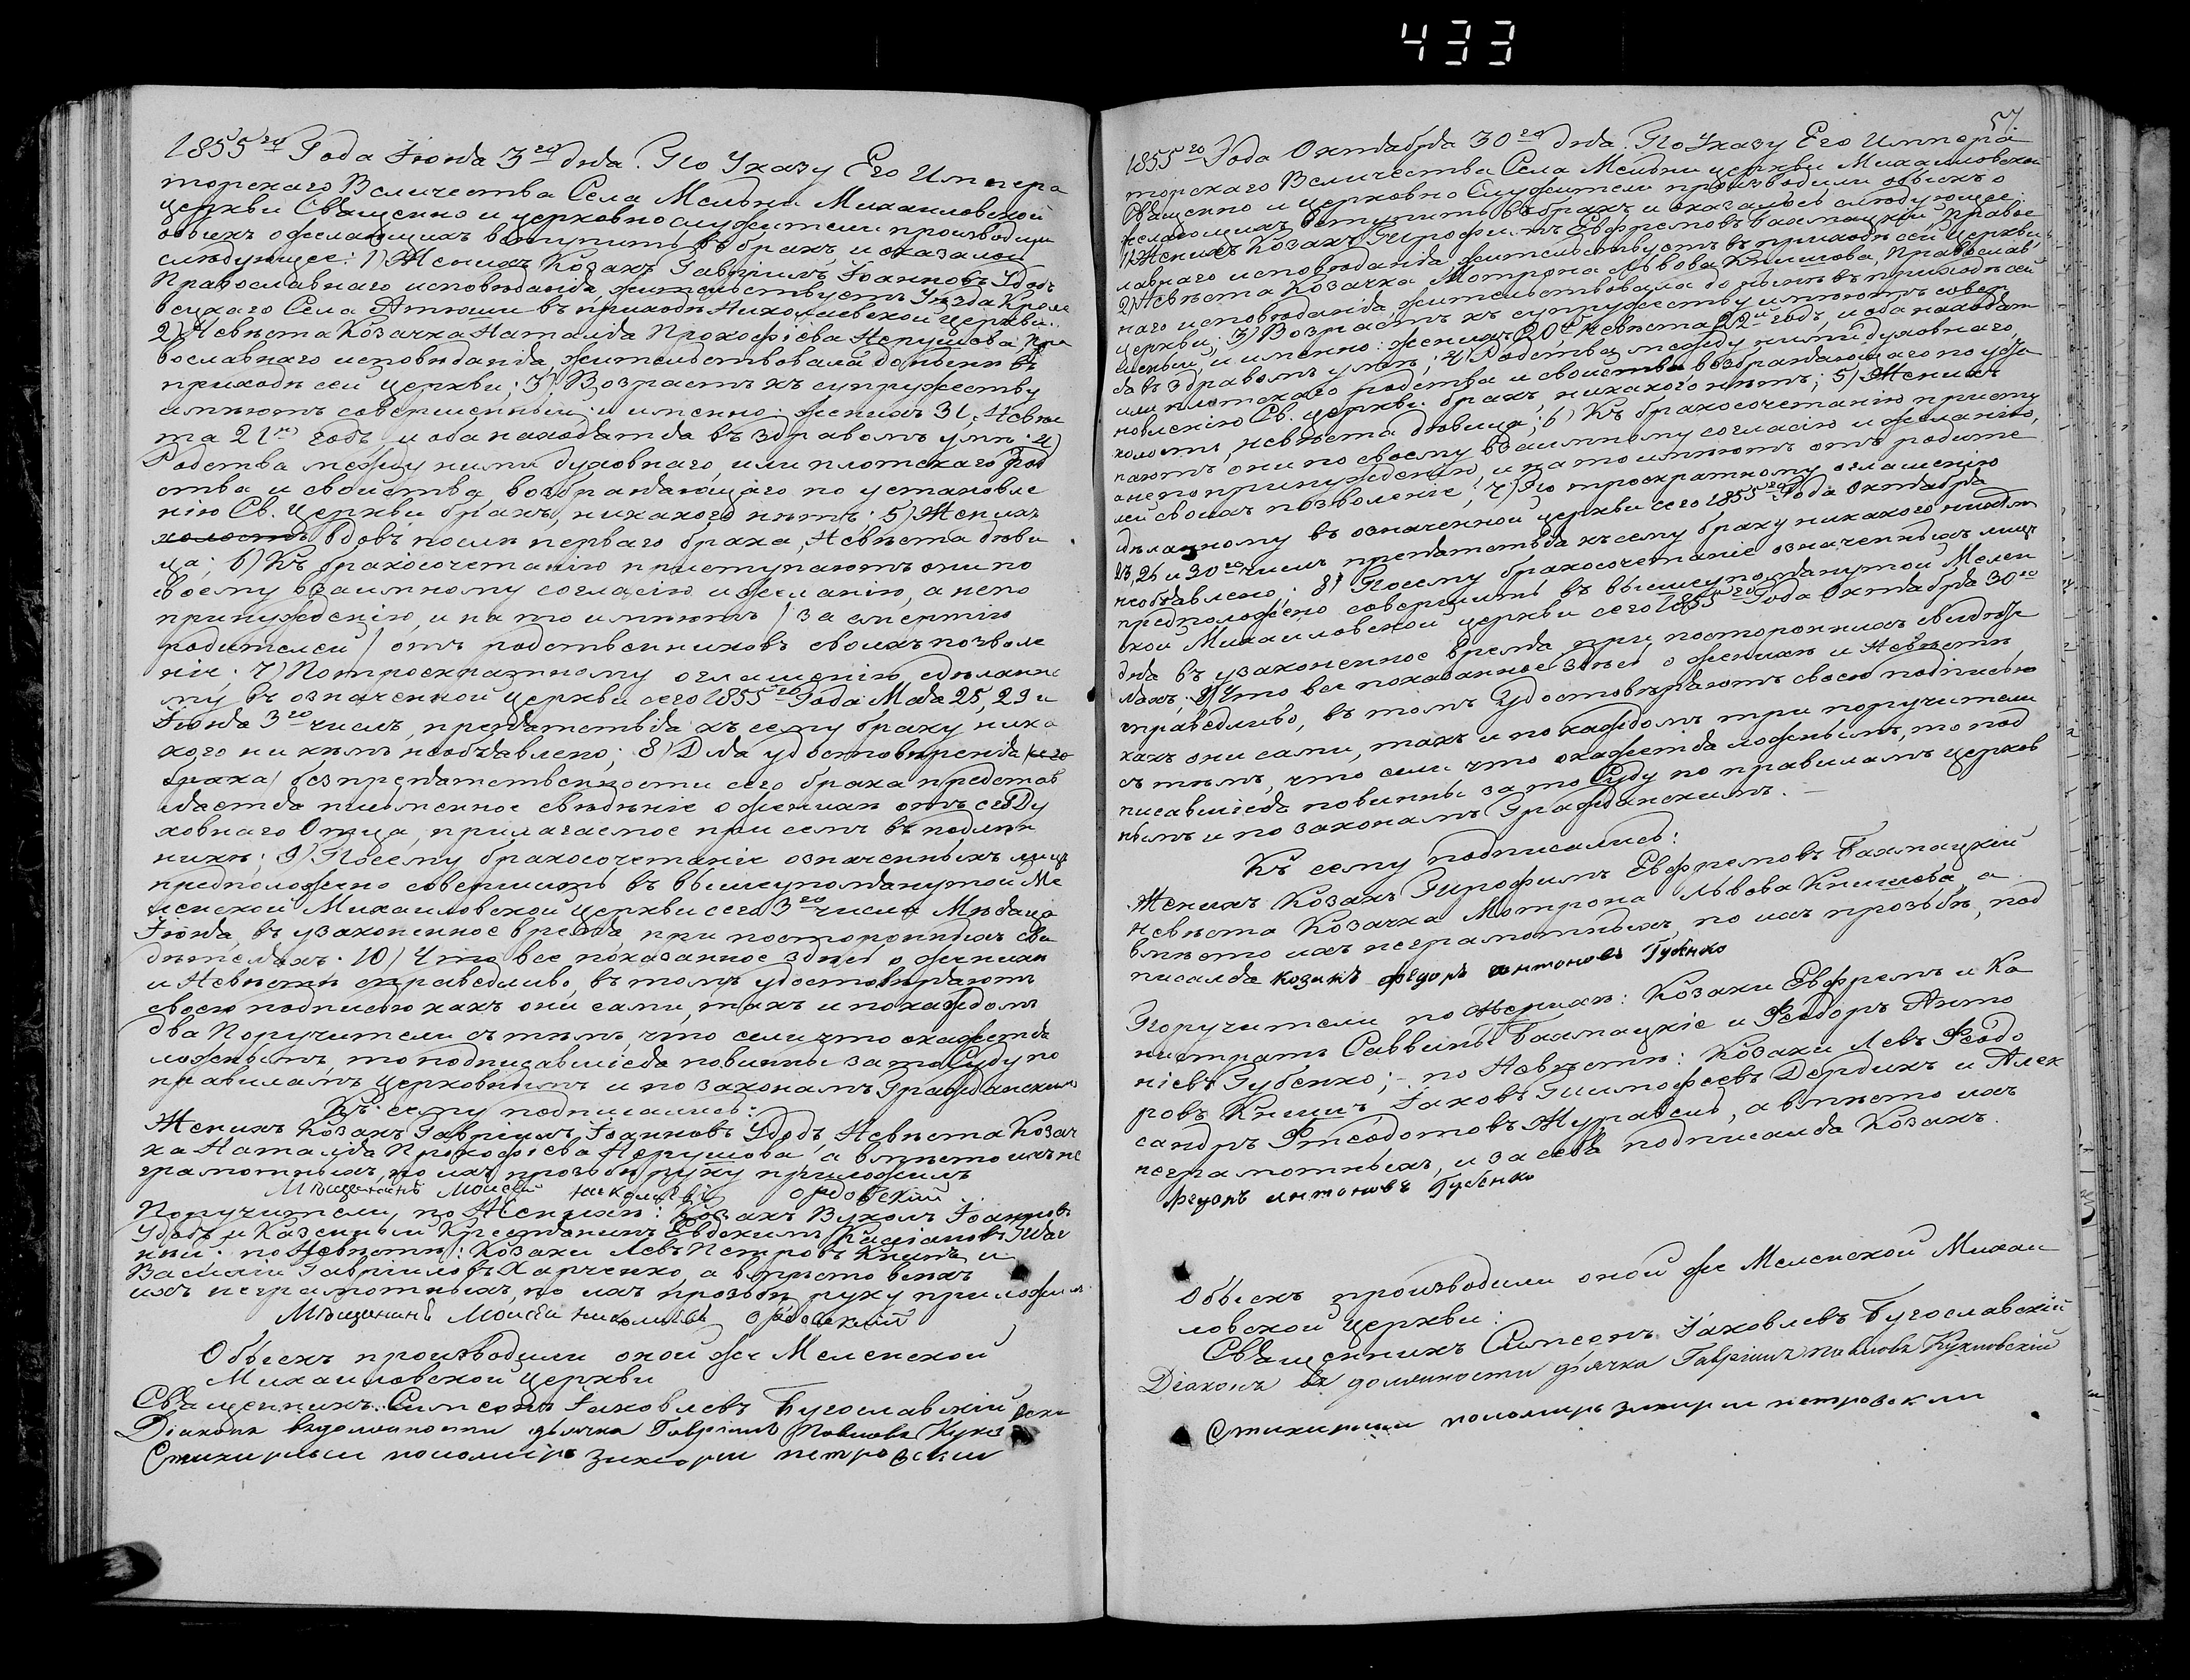 433
1855го Года Іюня 3го дня. По Указу Его Импера
торскаго Величества Села Мельни Михаиловской
церкви Священно и церковно служители производили
обыскъ о желающихъ вступить въ бракъ, и оказалось
слѣдующее: 1) Женихъ Козакъ Гавріилъ Іоанновъ Удодъ
Православнаго исповѣданія, жительствуетъ Уѣзда Кроле
вецкаго Села Атюши въ приходѣ Николаевской церкви.
2) Невѣста Козачка Наталія Прокофіева Нерушова, Пра
вославнаго исповѣданія, жительствовала донынѣ въ
приходѣ сей церкви; 3) Возрастъ къ супружеству
имѣютъ совершенный и именно: женихъ 31, Невѣс
та 21й годъ, и оба находятся въ здравомъ умѣ. 4)
Родства между ними духовнаго, или плотскаго род
ства и свойства, возбраняющаго по установле
нію Св. Церкви бракъ, никакого нѣтъ; 5) Женихъ
холостъ вдовъ послѣ перваго брака, Невѣста дѣви
ца; 6) Къ бракосочетанію приступаютъ они по
своему взаимному согласію и желанію, а не по
принужденію, и на то имѣютъ / за смертію
родителей / отъ родственниковъ своихъ позволе
ніе. 7) По троекратному оглашенію, сдѣланно
му въ означенной церкви сего 1855го Года Мая 25, 29 и
Іюня 3го чиселъ, препятствія къ сему браку ника
кого ни кѣмъ необъявлено; 8) Для удостовѣренія /сего
брака/ безпрепятственности сего брака представ
ляется письменное свѣдѣніе о женихѣ отъ его Ду
ховнаго Отца, прилагаемое при семъ въ подлин
никѣ; 9) Посему бракосочетаніе означенныхъ лицъ
предположено совершить въ вышеупомянутой Ме
ленской Михаиловской Церкви сего 3го числа Мѣсяца
Іюня, въ узаконенное время, при постороннихъ сви
дѣтеляхъ. 10) Что все показанное здѣсь о женихѣ
и Невѣстѣ справедливо, въ томъ удостовѣряютъ
своею подписью какъ они сами, такъ и по каждомъ
два Поручители съ тѣмъ, что если что окажется
ложнымъ, то подписавшіеся повинны за то Суду по
правиламъ Церковнымъ и по законамъ Гражданскимъ
Къ сему подписались:
Женихъ Козакъ Гавріилъ Іоанновъ Удодъ, Невѣста Козач
ка Наталія Прокофіева Нерушова, а вмѣсто ихъ не
грамотныхъ, по ихъ прозьбѣ руку приложилъ
Мѣщанинъ Моисей Николаевъ
Поручители по Женихѣ: Козакъ Вуколъ Іоанновъ
Удодъ и Казенный Крестьянинъ Евдокимъ
по Невѣстѣ: Козаки Левъ Петровъ Книшъ и
Василій Гавріиловъ Харченко, а вмѣсто всѣхъ
ихъ неграмотныхъ, по ихъ прозьбѣ руку приложилъ
Мѣщанинъ Моисей Николаевъ
Обыскъ производили оной же Меленской
Михаиловской церкви
Священникъ Симеонъ Іаковлевъ Бугославскій
Діаконъ въ должности дьячка Гавріилъ Павловъ
Стихарный пономарь петровскии
57
1855го Года Октября 30го дня. По Указу Его Импера
торскаго Величества Села Мельни церкви Михаиловской
Священно и церковно Служители производили обыскъ о
желающихъ вступить въ бракъ и оказалось слѣдующее:
1) Женихъ Козакъ Трофимъ Евфремовъ Бахмацкій Правос
лавнаго исповѣданія, жительствуетъ въ приходѣ сей Церкви;
2) Невѣста Козачка Мотрона Львова Книшова, Православ
наго исповѣданія, жительствовала донынѣ въ приходѣ сей
церкви; 3) Возрастъ къ супружеству имѣютъ совер
шенный, и именно: женихъ 20й, Невѣста 22й годъ, и оба находят
ся въ здравомъ умѣ; 4) Родства между ними духовнаго,
или плотскаго родства и свойства возбраняющаго по уста
новленію Св. церкви бракъ, никакого нѣтъ; 5) Женихъ
холостъ, невѣста дѣвица; 6) Къ бракосочетанію присту
паютъ они по своему взаимному согласію и желанію,
а не по принужденію, и на то имѣютъ отъ родите
лей своихъ позволеніе; 7) По троекратному оглашенію
сдѣланному въ означенной церкви сего 1855го Года Октября
23, 26 и 30го чиселъ препятствія къ сему браку никакого никѣмъ
необъявлено; 8) Посему бракосочетаніе означенныхъ лицъ
предположено совершить въ вышеупомянутой Мелен
ской Михаиловской церкви сего 1855го Года Октября 30го
дня въ узаконенное время при постороннихъ свидѣте
ляхъ; 9) Что все показанное здѣсь о женихѣ и Невѣстѣ
справедливо, въ томъ Удостовѣряютъ своею подписью
какъ они сами, такъ и по каждомъ три поручители
съ тѣмъ, что если что окажется ложнымъ, то под
писавшіеся повинны за то Суду по правиламъ церков
нымъ и по законамъ Гражданскимъ.
Къ сему подписались:
Женихъ Козакъ Трофимъ Евфремовъ Бахмацкій
Невѣста Козачка Мотрона Львова Книшова, а
вмѣсто ихъ неграмотныхъ, по ихъ прозьбѣ, под
писался козакъ Федоръ антоновъ Губенко
Поручители по Женихѣ: Козаки Евфремъ и Ка
листратъ Саввины Бахмацкіе и Феодоръ Анто
ніевъ Губенко; по Невѣстѣ: Козаки Левъ Феодо
ровъ Книшъ, Іаковъ Тимофеевъ Дердикъ и Алек
сандръ Феодотовъ Журавель, а вмѣсто ихъ
неграмотныхъ, и за себя подписался Козакъ
Федоръ Антоновъ Губенко
Обыскъ производили оной же Меленской Михаи
ловской церкви:
Священникъ Симеонъ Іаковлевъ Бугославскій
Діаконъ въ должности дьячка Гавріилъ Павловъ Кукловскій
Стихарный пономарь петровскии